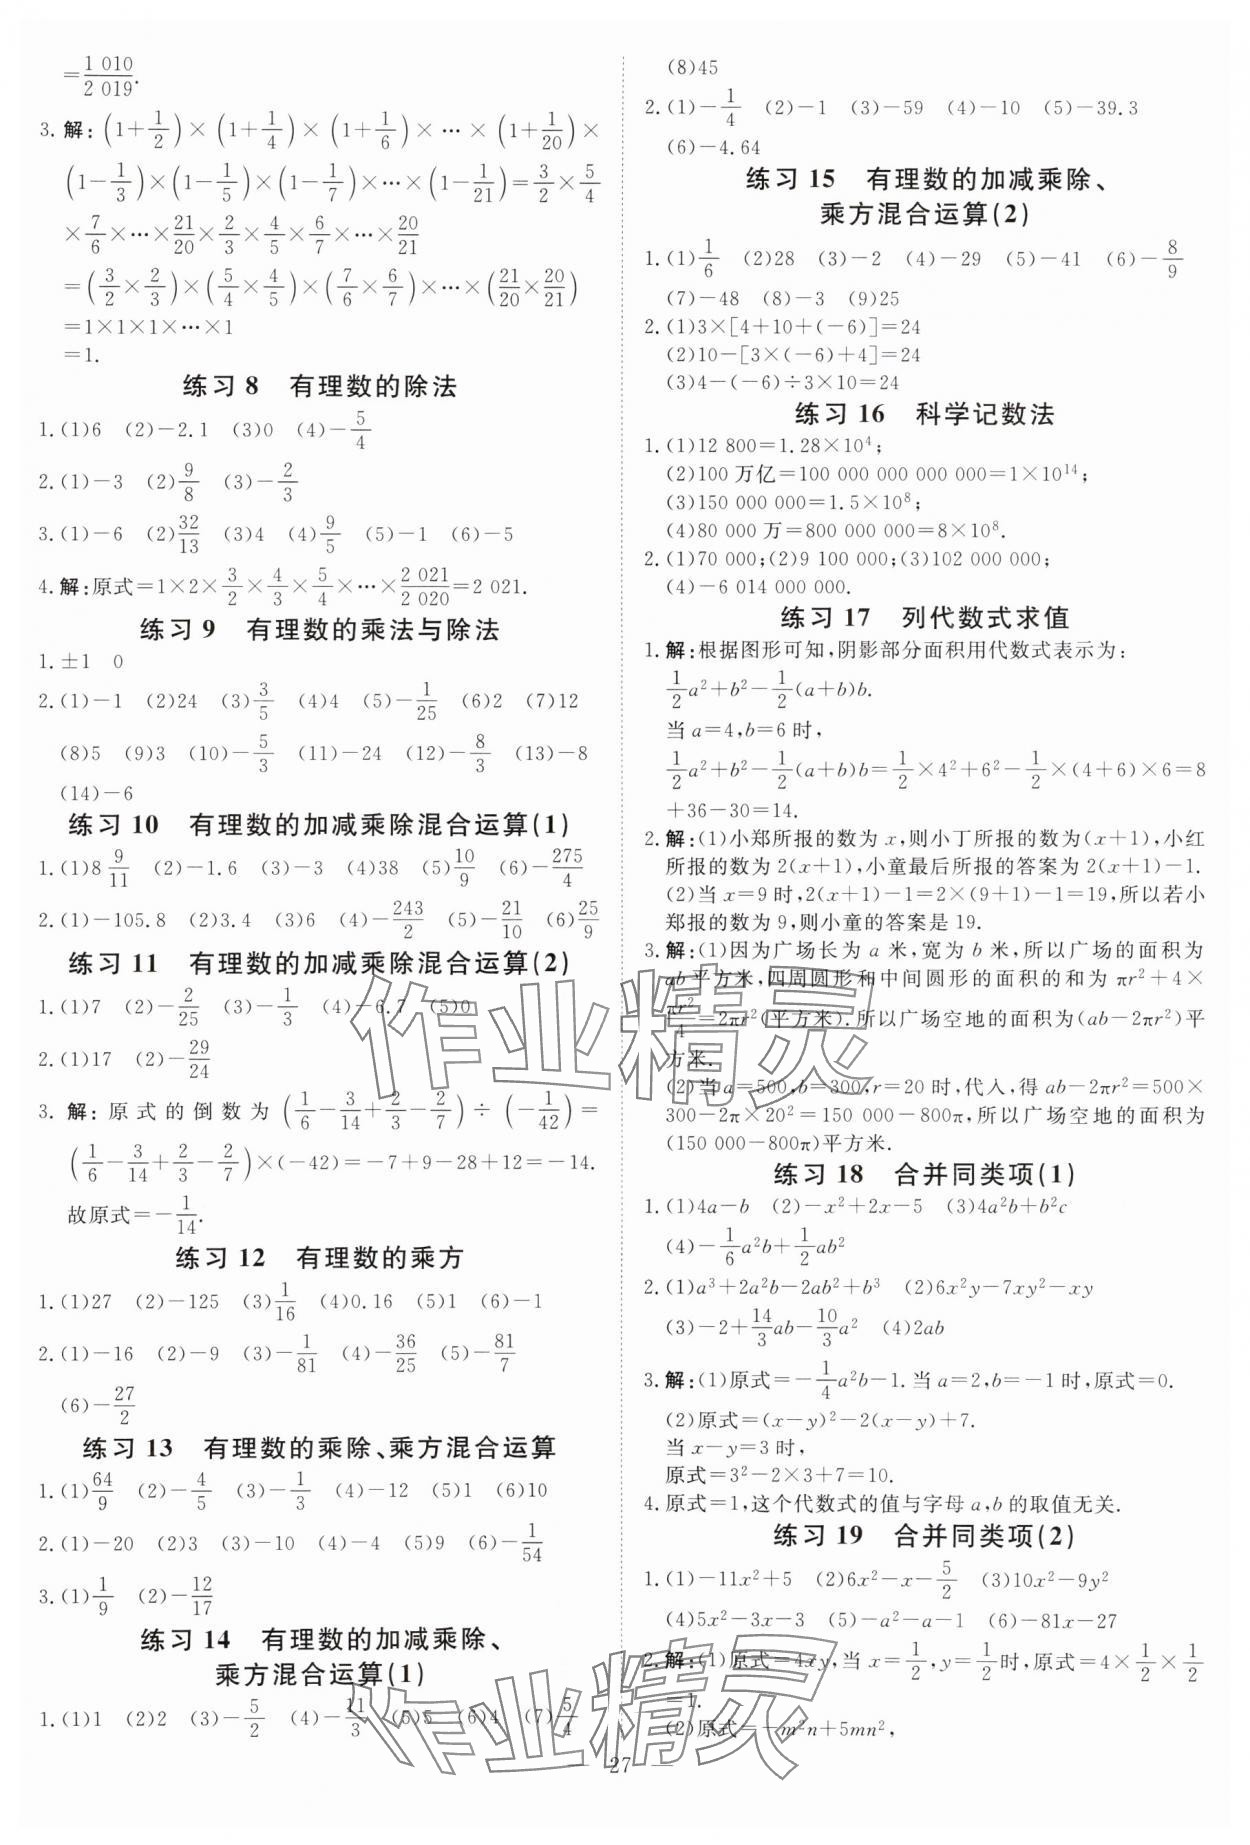 =1 010/2 019.
3.解:(1+1/2)×(1+1/4)×(1+1/6)×…×(1+1/20)×
(1-1/3)×(1-1/5)×(1-1/7)×…×(1-1/21)=3/2×5/4
×7/6×…×21/20×2/3×4/5×6/7×…×20/21
=(3/2×2/3)×(5/4×4/5)×(7/6×6/7)×…×(21/20×20/21)
=1×1×1×…×1
=1.
练习 8 有理数的除法
1.(1)6 (2)-2.1 (3)0 (4)-5/4
2.(1)-3 (2)9/8 (3)-2/3
3.(1)-6 (2)32/13 (3)4 (4)9/5 (5)-1 (6)-5
4.解:原式=1×2×3/2×4/3×5/4×…×2 021/2 020=2 021.
练习 9 有理数的乘法与除法
1.±1 0
2.(1)-1 (2)24 (3)3/5 (4)4 (5)-1/25 (6)2 (7)12
(8)5 (9)3 (10)-5/3 (11)-24 (12)-8/3 (13)-8
(14)-6
练习 10 有理数的加减乘除混合运算(1)
1.(1)8 9/11 (2)-1.6 (3)-3 (4)38 (5)10/9 (6)-275/4
2.(1)-105.8 (2)3.4 (3)6 (4)-243/2 (5)-21/10 (6)25/9
练习 11 有理数的加减乘除混合运算(2)
1.(1)7 (2)-2/25 (3)-1/3 (4)-6.7 (5)0
2.(1)17 (2)-29/24
3.解:原式的倒数为(1/6-3/14+2/3-2/7)÷(-1/42)=
(1/6-3/14+2/3-2/7)×(-42)=-7+9-28+12=-14.
故原式=-1/14.
练习 12 有理数的乘方
1.(1)27 (2)-125 (3)1/16 (4)0.16 (5)1 (6)-1
2.(1)-16 (2)-9 (3)-1/81 (4)-36/25 (5)-81/7
(6)-27/2
练习 13 有理数的乘除、乘方混合运算
1.(1)64/9 (2)-4/5 (3)-1/3 (4)-12 (5)1 (6)10
2.(1)-20 (2)3 (3)-10 (4)-4 (5)9 (6)-1/54
3.(1)1/9 (2)-12/17
练习 14 有理数的加减乘除、
乘方混合运算(1)
1.(1)1 (2)2 (3)-5/2 (4)-11/3 (5)5 (6)4 (7)5/4
(8)45
2.(1)-1/4 (2)-1 (3)-59 (4)-10 (5)-39.3
(6)-4.64
练习 15 有理数的加减乘除、
乘方混合运算(2)
1.(1)1/6 (2)28 (3)-2 (4)-29 (5)-41 (6)-8/9
(7)-48 (8)-3 (9)25
2.(1)3×[4+10+(-6)]=24
(2)10-[3×(-6)+4]=24
(3)4-(-6)÷3×10=24
练习 16 科学记数法
1.(1)12 800=1.28×10⁴;
(2)100 万亿=100 000 000 000 000=1×10¹⁴;
(3)150 000 000=1.5×10⁸;
(4)80 000 万=800 000 000=8×10⁸.
2.(1)70 000;(2)9 100 000;(3)102 000 000;
(4)-6 014 000 000.
练习 17 列代数式求值
1.解:根据图形可知,阴影部分面积用代数式表示为:
1/2a²+b²-1/2(a+b)b.
当 a=4,b=6 时,
1/2a²+b²-1/2(a+b)b=1/2×4²+6²-1/2×(4+6)×6=8
+36-30=14.
2.解:(1)小郑所报的数为 x,则小丁所报的数为(x+1),小红
所报的数为 2(x+1),小童最后所报的答案为 2(x+1)-1.
(2)当 x=9 时,2(x+1)-1=2×(9+1)-1=19,所以若小
郑报的数为 9,则小童的答案是 19.
3.解:(1)因为广场长为 a 米,宽为 b 米,所以广场的面积为
ab平方米,四周圆形和中间圆形的面积的和为 πr²+4×
πr²/4=2πr²(平方米).所以广场空地的面积为(ab-2πr²)平
方米.
(2)当 a=500,b=300,r=20 时,代入,得 ab-2πr²=500×
300-2π×20²=150 000-800π,所以广场空地的面积为
(150 000-800π)平方米.
练习 18 合并同类项(1)
1.(1)4a-b (2)-x²+2x-5 (3)4a²b+b²c
(4)-1/6a²b+1/2ab²
2.(1)a³+2a²b-2ab²+b³ (2)6x²y-7xy²-xy
(3)-2+14/3ab-10/3a² (4)2ab
3.解:(1)原式=-1/4a²b-1.当 a=2,b=-1 时,原式=0.
(2)原式=(x-y)²-2(x-y)+7.
当 x-y=3 时,
原式=3²-2×3+7=10.
4.原式=1,这个代数式的值与字母 a,b 的取值无关.
练习 19 合并同类项(2)
1.(1)-11x²+5 (2)6x²-x-5/2 (3)10x²-9y²
(4)5x²-3x-3 (5)-a²-a-1 (6)-81x-27
2.解:(1)原式=4xy,当 x=1/2,y=1/2时,原式=4×1/2×1/2
=1.
(2)原式=-m²n+5mn²,
— 27 —
作业精灵
作业精灵